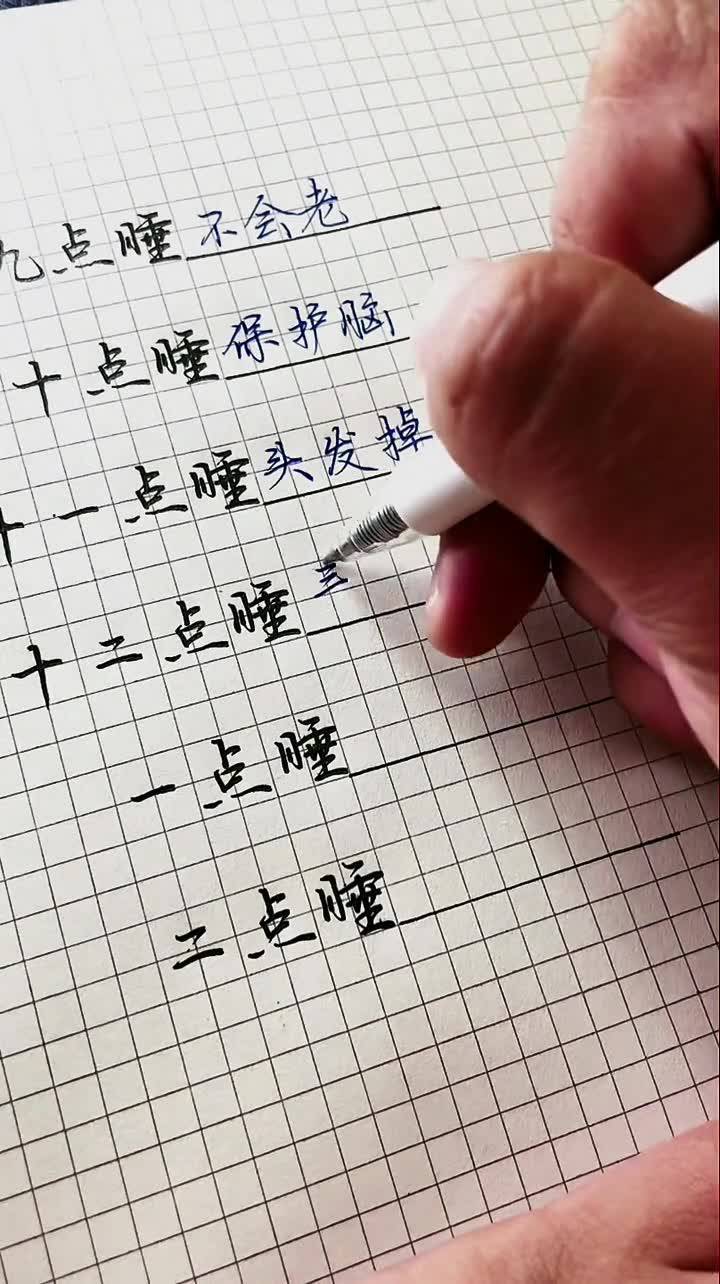 九点睡不会老
十点睡保护脑
十一点睡头发掉
十二点睡三
一点睡
二点睡